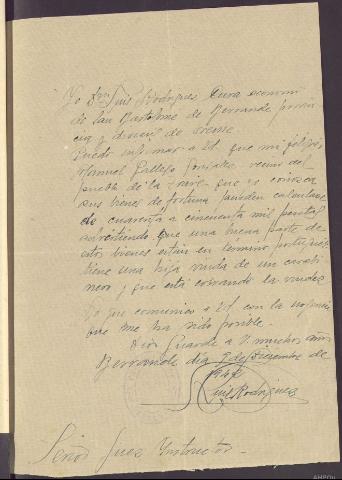 Yo Don Luis Rodriguez Cura economo
de San Bartolome de Berrande provin
cia y diocesis de Orense
Puedo informar a Ud. que mi feligres
Manuel Gallego Gonzalez vecino del
pueblo de la que yo conozca
sus bienes de fortuna pueden calcularse
de cuarenta a cincuenta mil pesetas
advirtiendo que una buena parte de
estos bienes estan en termino portugues
tiene una hija viuda de un carabi
nero y que está cobrando la viudez
Lo que comunico a Ud con la
que me ha sido posible.
Dios Guarde a V. muchos años
Berrande dia 7 de Diciembre de
Luis Rodriguez
Señor Juez Instructor -